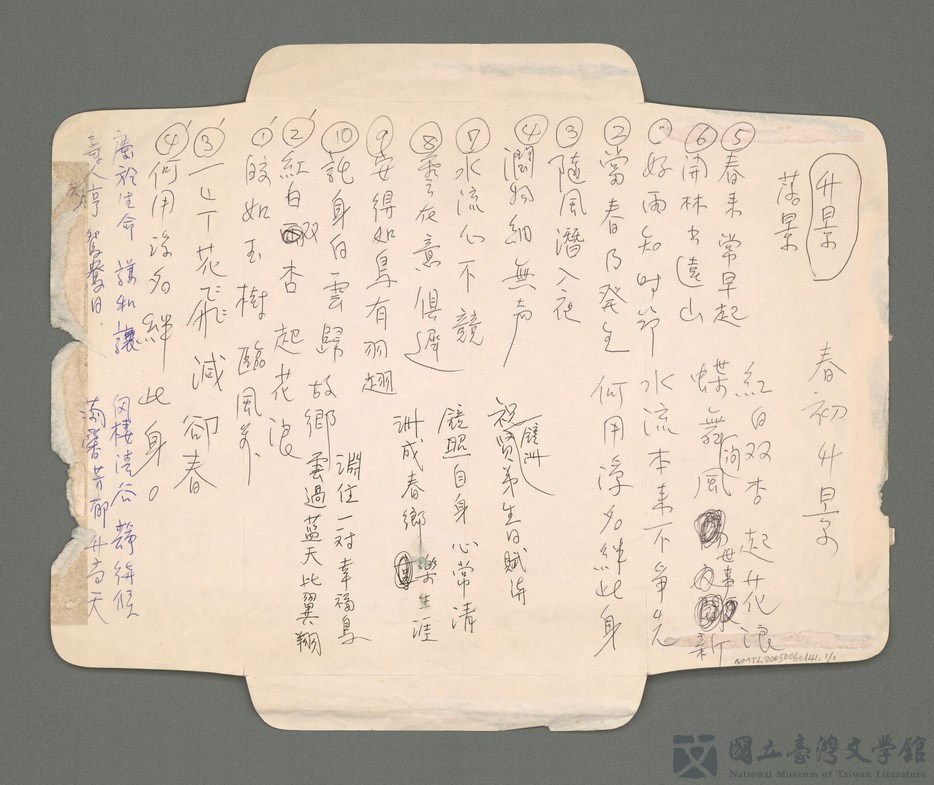 升景
落景
春初升景
⑤春來常早起
紅白双杏起花浪
⑥開林出遠山
蝶舞 風 世事 新
①好雨知時節
水流本來不爭先
②當春乃發生
何用浮名絆此身
③隨風潛入夜
④潤物細無声
鏡洲
祝賢弟生日賦詩
⑦水流心不競
鏡照自身心常清
⑧雲在意俱遲
洲成春鄉 樂生涯
⑨安得如鳥有羽翅
⑩託身白雲歸故鄉
淵住一对幸福鳥
雲過藍天比翼翔
②紅白双杏起花浪
①皎如玉樹臨風前
③一片花飛減卻春
④何用浮名絆此身。
生命 謙和讓
谷靜 候
壽人 鴛鴦日.
芳郁升高天
NMTL20050060141. 1/1
國立臺灣文學館
National Museum of Taiwan Literature